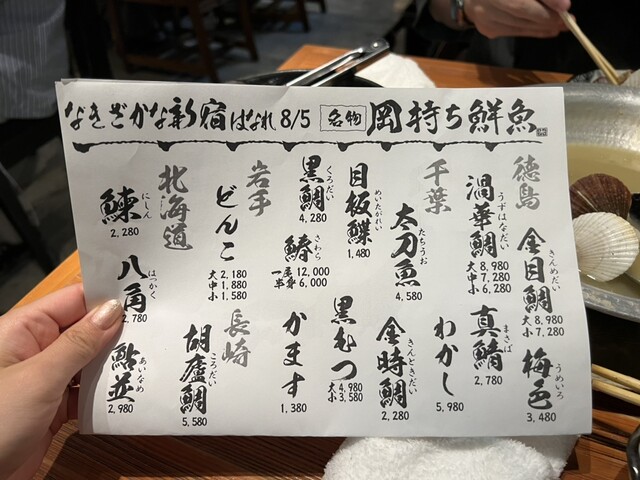 なきざかな新宿はなれ 8/5 名物 岡持ち鮮魚
徳島
金目鯛
きんめだい
大 8,980
小 7,280
梅色
うめいろ
3,480
渦華鯛
うずはなだい
大 8,980
中 7,280
小 6,280
真鯖
まさば
2,780
千葉
わかし
5,980
太刀魚
たちうお
4,580
金時鯛
きんときだい
2,280
目板鰈
めいたがれい
1,480
黒むつ
大 4,980
小 3,580
黒鯛
くろだい
4,280
鰆
さわら
一尾 12,000
半身 6,000
かます
1,380
岩手
どんこ
大 2,180
中 1,880
小 1,580
長崎
胡廬鯛
ころだい
5,580
北海道
鰊
にしん
2,280
八角
はっかく
2,780
鮎並
あいなめ
2,980